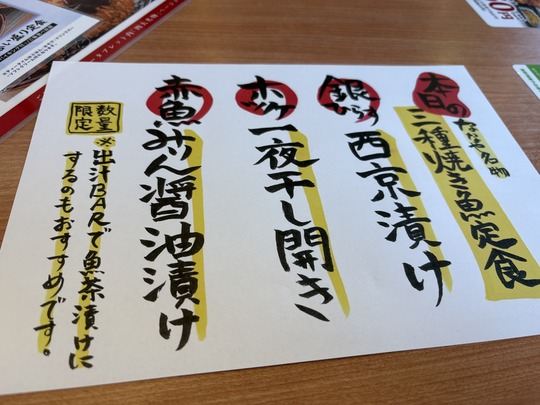 本日の
なかや名物
三種焼き魚定食
銀ひらす
西京漬け
ホッケ
一夜干し開き
赤魚
みりん醤油漬け
数量限定
※出汁BARで魚茶漬けに
するのもおすすめです。